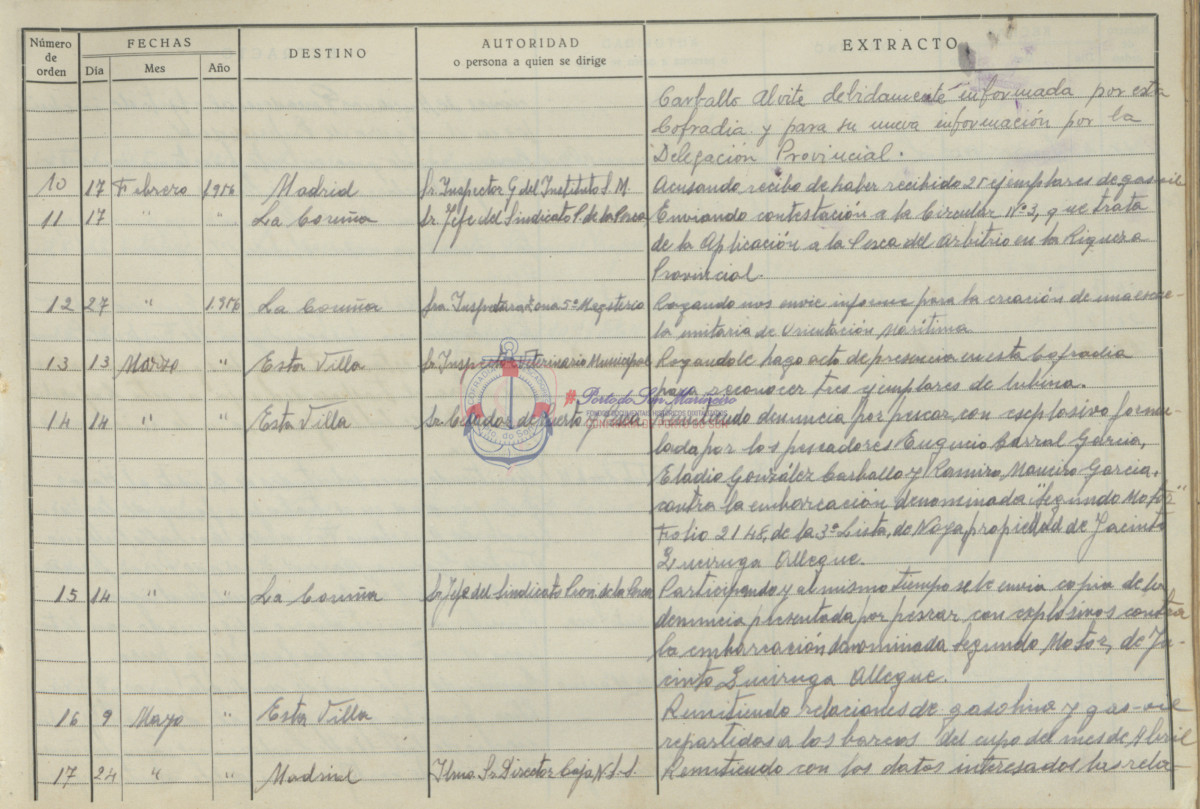 Número de orden FECHAS DESTINO AUTORIDAD EXTRACTO
Día Mes Año o persona a quien se dirige
Carballo Alvite debidamente informada por esta
Cofradia y para su nueva información por la
Delegación Provincial.
10 17 Febrero 1956 Madrid Sr. Inspector G del Instituto S. M. Acusando recibo de haber recibido 25 ejemplares de gas-oil
11 17 " " La Coruña Sr. Jefe del Sindicato P. de la Pesca Enviando contestación a la Circular Nº 3, que trata
de la Aplicación a la Pesca del Arbitrio en la Riqueza
Provincial.
12 27 " 1.956 La Coruña Sra. Inspectora Zona 5ª Magisterio Rogando nos envie informe para la creación de una escue-
la unitaria de Orientación Marítima
13 13 Marzo " Esta Villa Sr. Inspector Veterinario Municipal Rogandole haga acto de presencia en esta Cofradia
para reconocer tres ejemplares de lubina.
14 14 " " Esta Villa Sr. Celador de Puerto y Pesca Remitiendo denuncia por pescar con explosivo formu-
lada por los pescadores Eugenio Carral Garcia,
Eladio González Carballo y Ramiro Maneiro Garcia,
contra la embarcación denominada "Segundo Motor"
Folio 2148, de la 3ª Lista, de Noya, propiedad de Jacinto
Queiruga Allegue.
15 14 " " La Coruña Sr. Jefe del Sindicato Prov. de la Pesca Participando y al mismo tiempo se le envia copia de la
denuncia presentada por pescar con explosivos contra
la embarcación denominada Segundo Motor, de Ja-
cinto Queiruga Allegue.
16 9 Mayo " Esta Villa Remitiendo relaciones de gasolina y gas-oil
repartidos a los barcos del cupo del mes de Abril
17 24 " " Madrid Ilmo. Sr. Director Caja N.S.S. Remitiendo con los datos interesados las rela-
#Porto do Son Mariñeiro